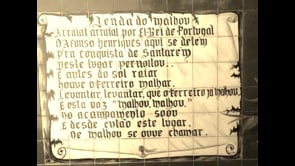 Lenda do malhou
Arraial arraial por El Rei de Portugal
D Afonso henriques aqui se detem
Pra conquista de Santarem
Neste lugar pernoitou..
E antes do sol raiar
houve o ferreiro malhar.
Levantar, levantar, que o ferreiro já malhou.
E esta voz "malhou, malhou."
No acampamento soou
E desde então este lugar.
De malhou se ouve chamar.